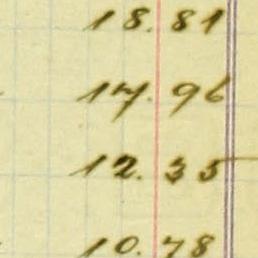 18.81
17.96
12.35
10.78